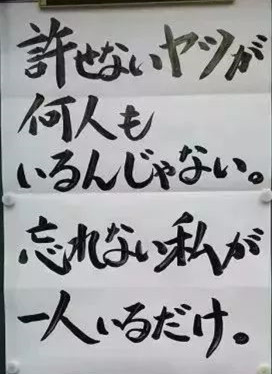 許せないヤツが
何人も
いるんじゃない。
忘れない私が
一人いるだけ。